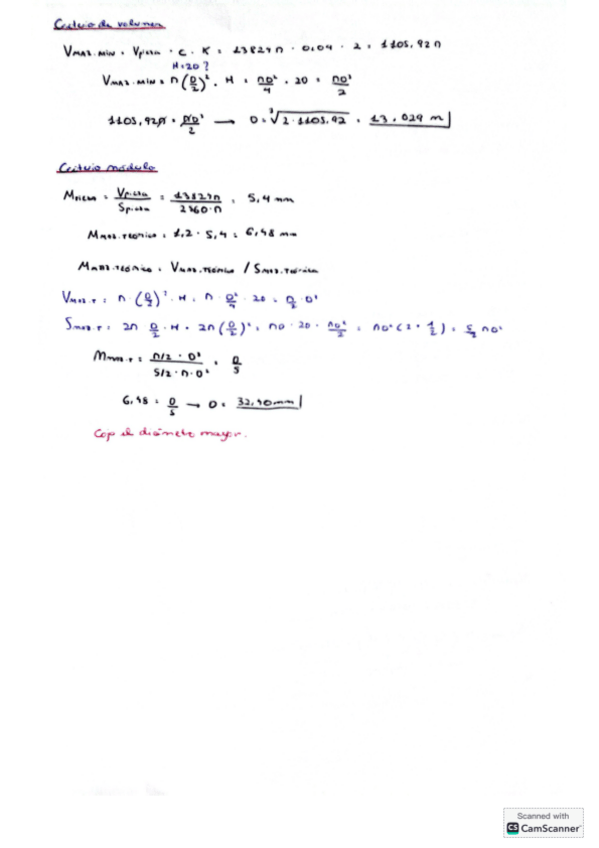 Criterio de volumen
Vmaz.min = Vpieza · C · K = 13824π · 0,04 · 2 = 1105,92π
H=2D?
Vmaz.min = π(D/2)² · H = πD²/4 · 2D = πD³/2
1105,92π = πD³/2 → D = ³√2·1105,92 = 13,029 m
Criterio módulo
Mpieza = Vpieza/Spieza = 13824π/2560·π = 5,4 mm
Mmaz.teorico = 1,2 · 5,4 = 6,48 mm
Mmaz.teórico = Vmaz.teórico / Smaz.teórica
Vmaz.t = π · (D/2)² · H = π · D²/4 · 2D = π/2 · D³
Smaz.t = 2π D/2 · H + 2π(D/2)² = πD · 2D + πD²/2 = πD²(2+1/2) = 5/2 πD²
Mmaz.t = π/2 · D³ / 5/2 · π · D² = D/5
6,48 = D/5 → D = 32,40mm
Cojo el diámetro mayor.
Scanned with
CS CamScanner